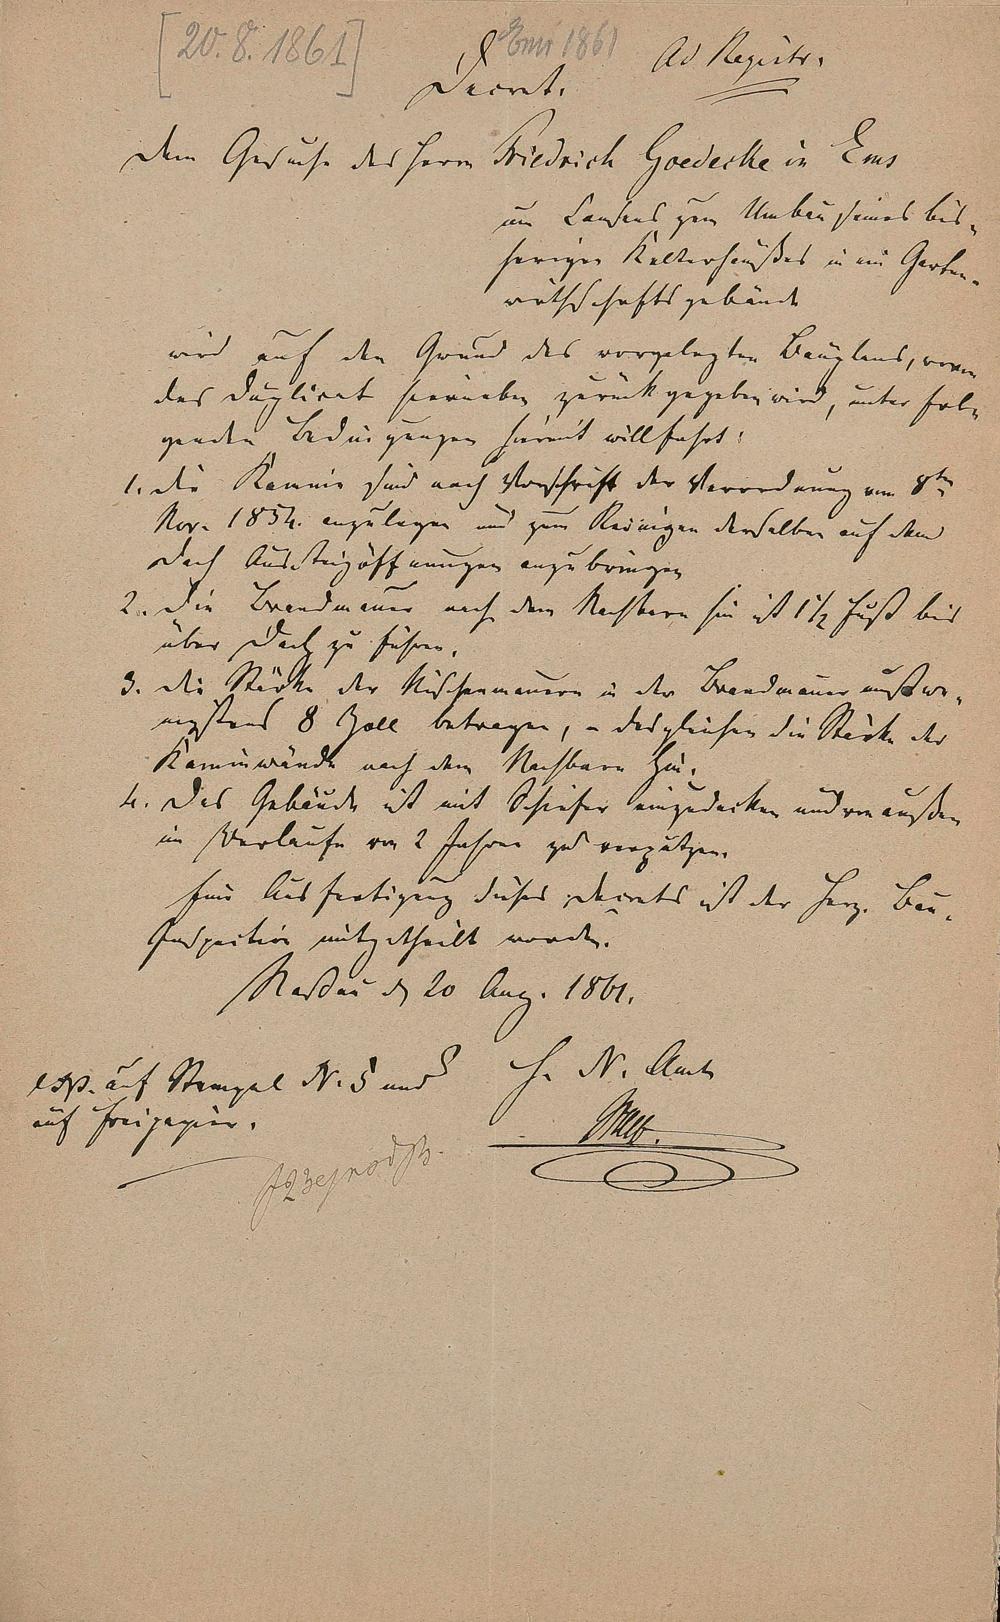 [20.8.1861]
Ems 1861
Ad Registr.
Decret.
Dem Gesuche des Herrn Friedrich Goedecke in Ems
um Consens zum Umbau seines bis-
herigen Kelterhaußes in ein Garten-
wirthschaftsgebäude
wird auf den Grund des vorgelegten Bauplans, wovon
das Duplicat hierneben zurückgegeben wird, unter fol-
genden Bedingungen hiermit willfahrt:
1. Die Kamine sind nach Vorschrift der Verordnung vom 8ten
Nov. 1854. anzulegen und zum Reinigen derselben auf dem
Dach Aussteigöffnungen anzubringen
2. Die Brandmauer nach dem Nachbarn hin ist 1 1/2 Fuß bis
über Dach zu führen.
3. Die Stärke der Nischenmauern in der Brandmauer muß we-
nigstens 8 Zoll betragen, - desgleichen die Stärke der
Kaminwände nach dem Nachbarn hin.
4. Das Gebäude ist mit Schiefer einzudecken und von außen
im Verlaufe von 2 Jahren zu verputzen.
Eine Ausfertigung dieses Decrets ist der Herz. Bau-
Inspection mitgetheilt worden.
Nassau d 20 Aug. 1861.
H. N. Amt
exp. auf Stempel N. 5 und
auf Freipapier.